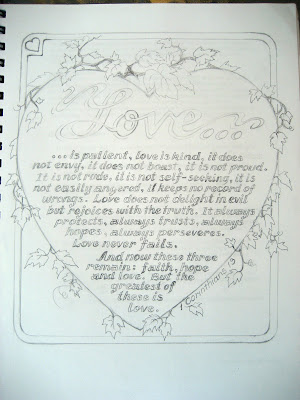 Love...
...is patient, love is kind, it does
not envy, it does not boast, it is not proud.
It is not rude, it is not self-seeking, it is
not easily angered, it keeps no record of
wrongs. Love does not delight in evil
but rejoices with the truth. It always
protects, always trusts, always
hopes, always perseveres.
Love never fails.
And now these three
remain: faith, hope
and love. But the
greatest of
these is
love.
Corinthians 13